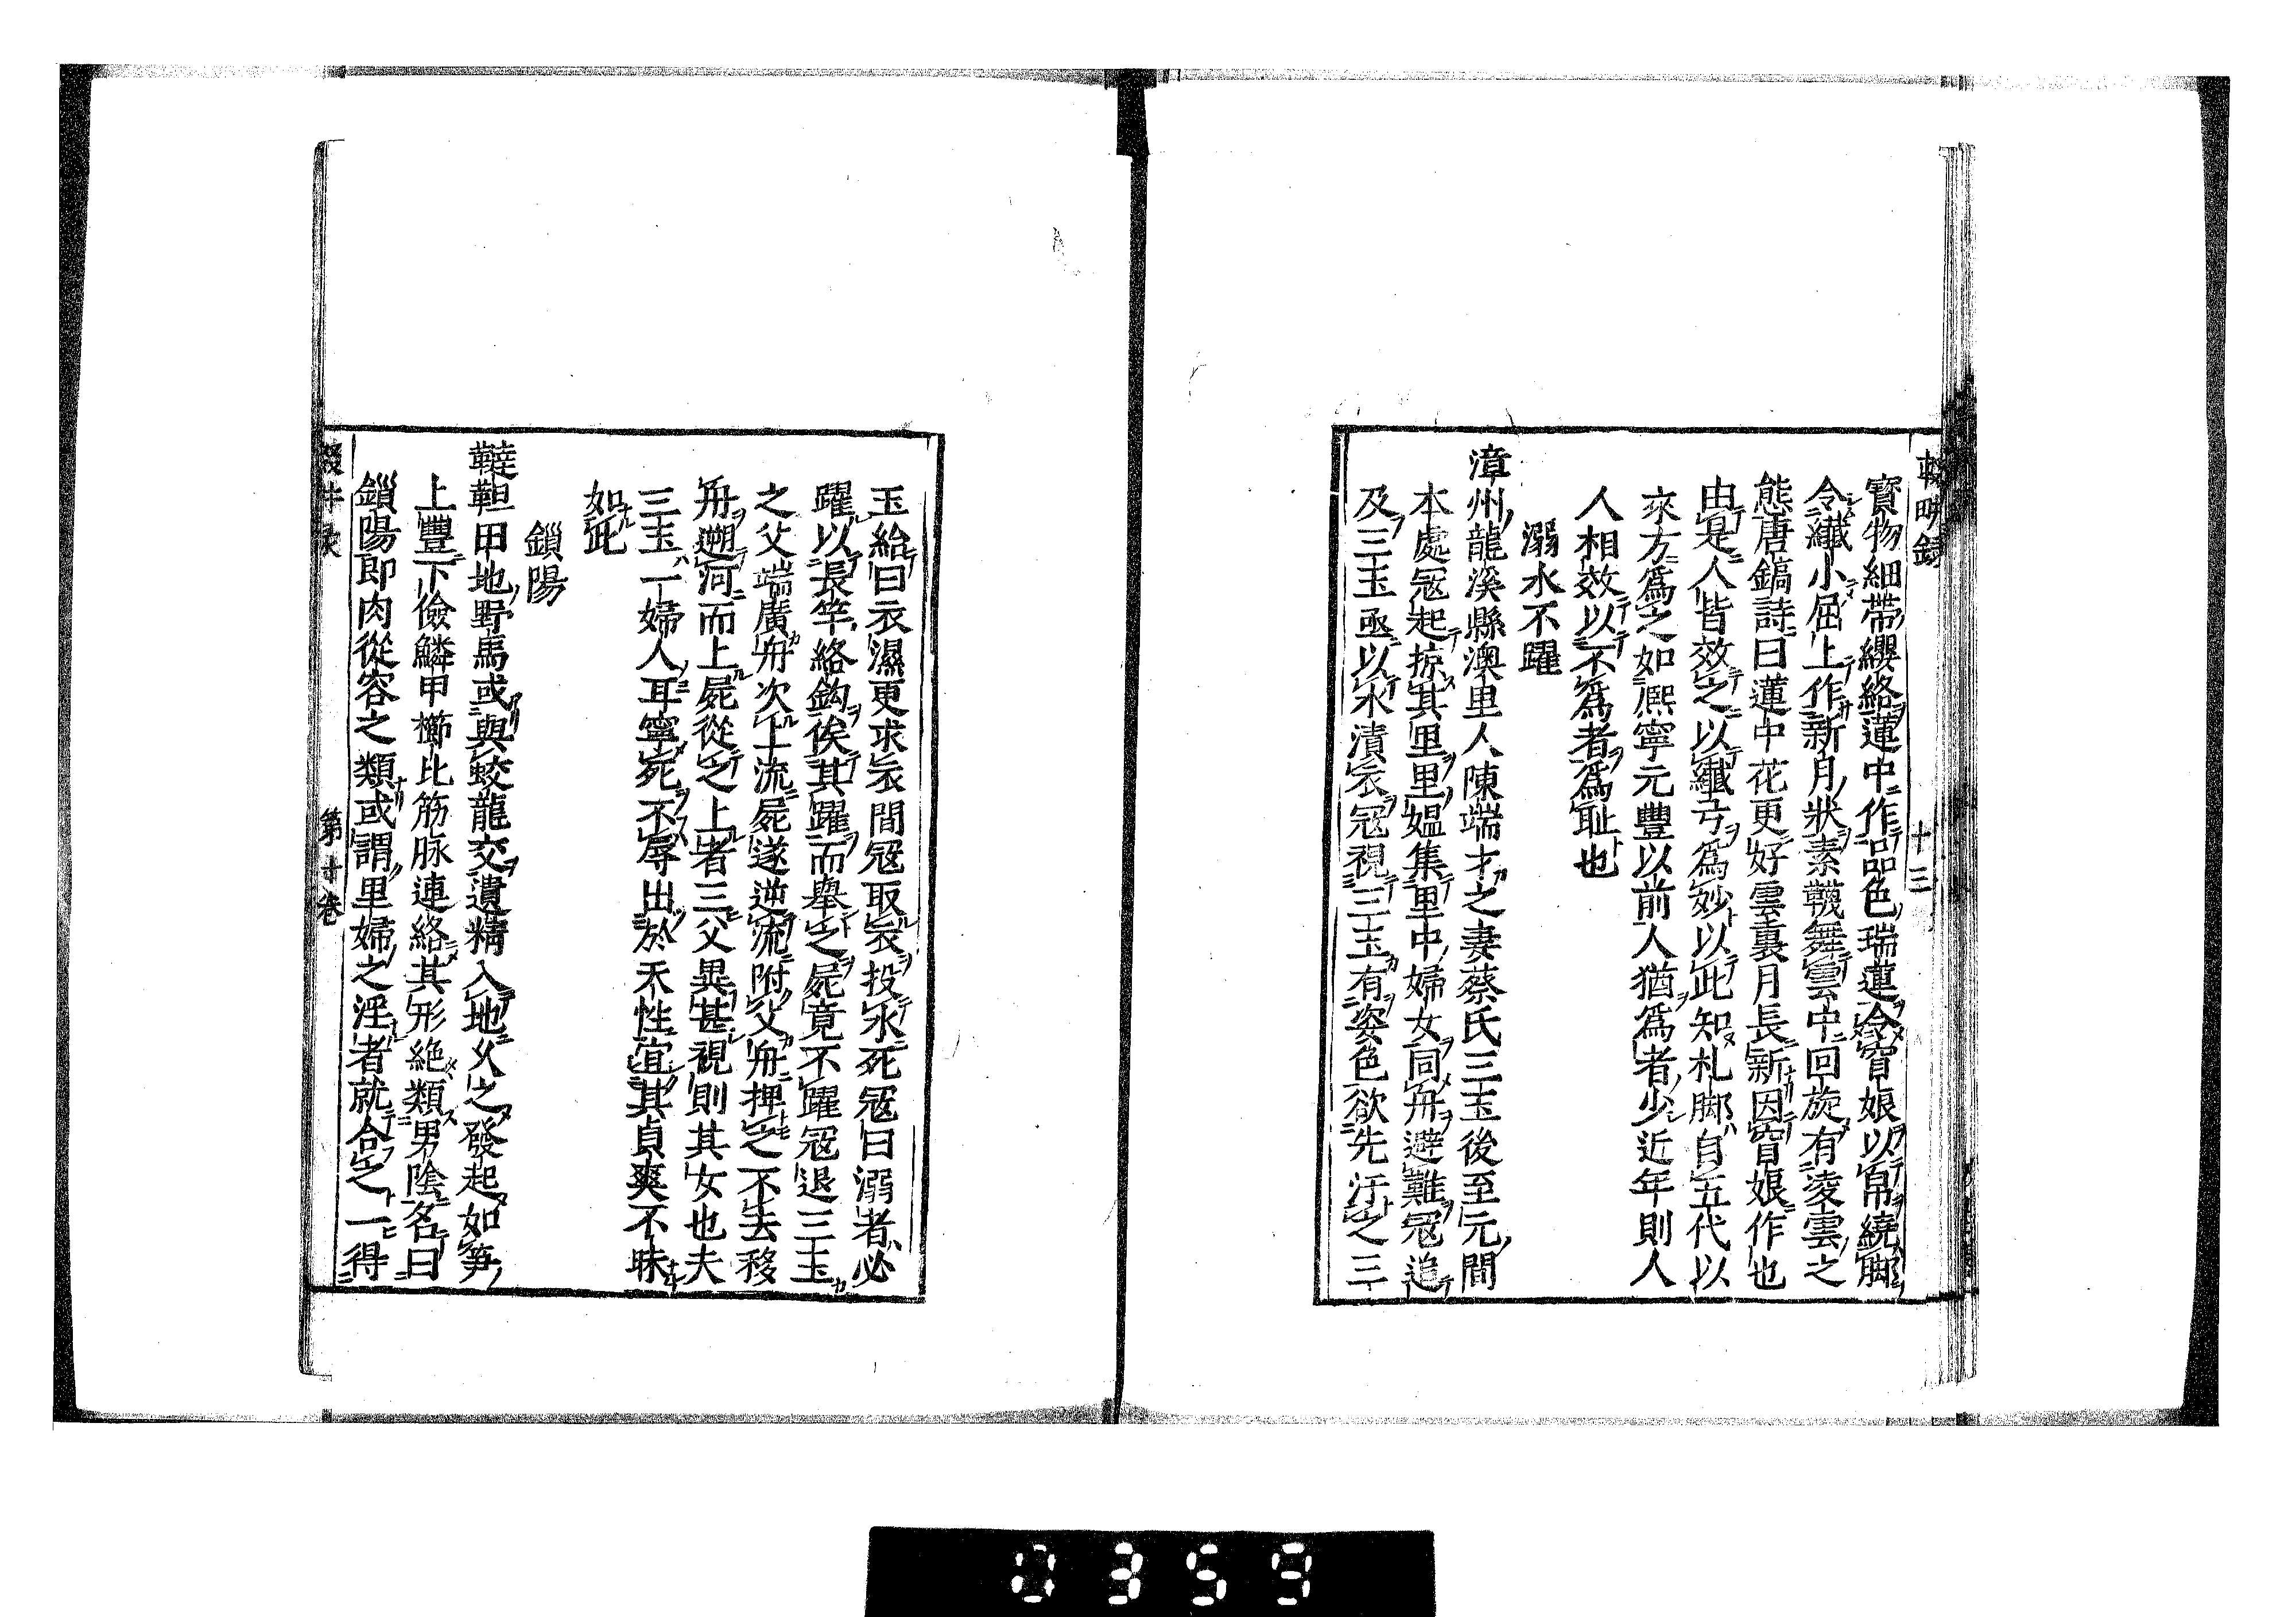 輟畊錄 十三
寳物細帶纓絡蓮中作品色瑞蓮令窅娘以帛繞脚
令纖小屈上作新月狀素韈舞雲中回旋有凌雲之
態唐鎬詩曰蓮中花更好雲裏月長新因窅娘作也
由是人皆效之以纖弓爲妙以此知札脚自五代以
來方爲之如熈寧元豐以前人猶爲者少近年則人
人相效以不爲者爲耻也
溺水不躍
漳州龍溪縣澳里人陳端才之妻蔡氏三玉後至元間
本處冦起掠其里里媼集里中婦女同舟避難冦追
及三玉亟以水漬衣冦視三玉有姿色欲先汙之三
玉紿曰衣濕更求衣間冦取衣投水死冦曰溺者必
躍以長竿絡鈎俟其躍而舉之屍竟不躍冦退三玉
之父端廣舟次上流屍遂逆流附父舟押之不去移
舟遡河而上屍從之上者三父異甚視則其女也夫
三玉一婦人耳寧死不辱出於天性宜其貞爽不昧
如此
鎖陽
韃靼田地野馬或與蛟龍交遺精入地久之發起如笋
上豐下儉鱗甲櫛比筋脉連絡其形絶類男陰名曰
鎖陽即肉從容之類或謂里婦之淫者就合之一得
第十卷
0359